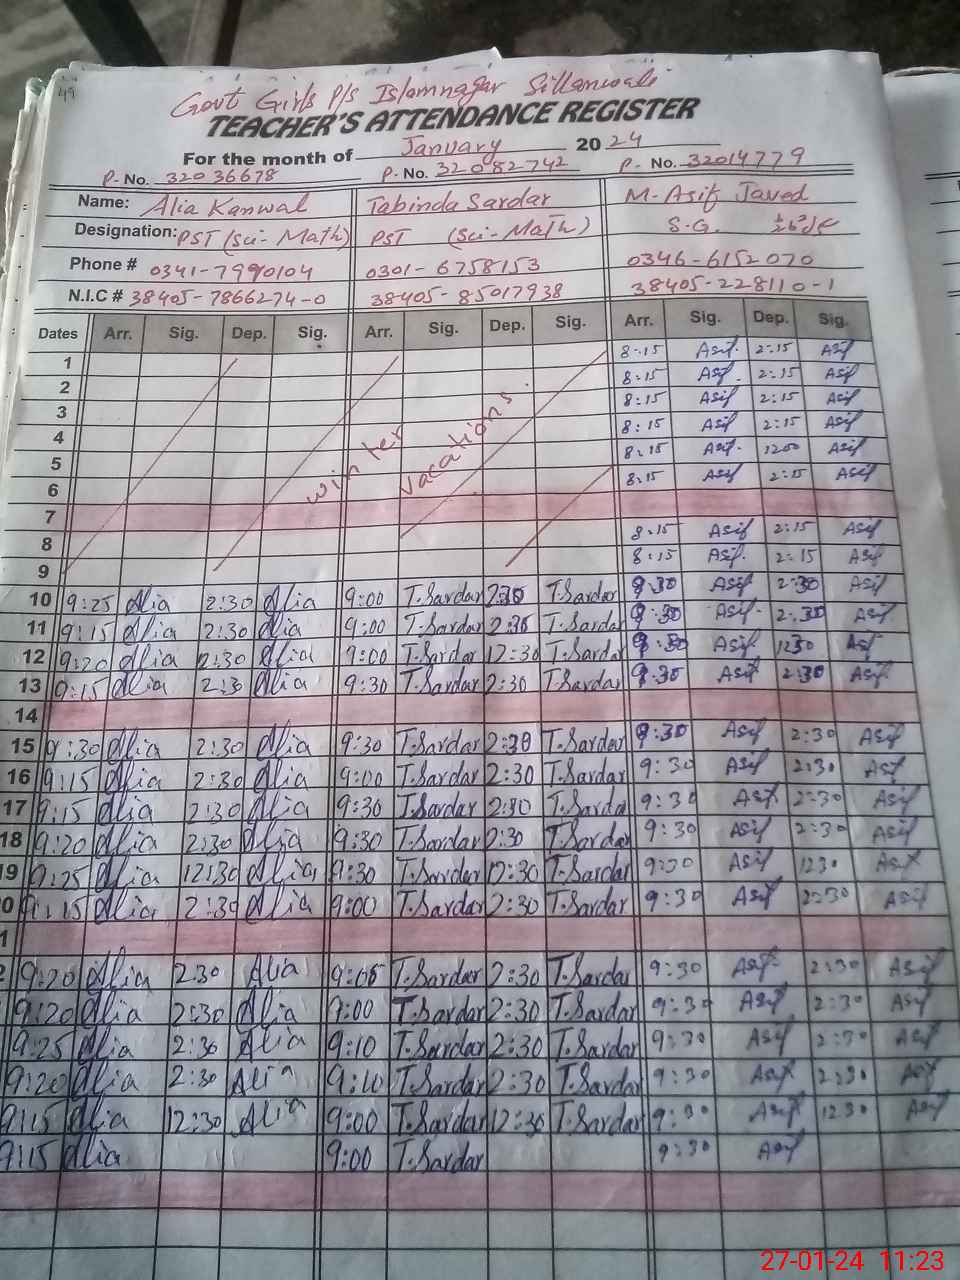 49
Govt Girls P/s Islamnagar Sillanwali
TEACHER'S ATTENDANCE REGISTER
For the month of January 2024
P- No. 32036678 P- No. 32082742 P- No. 32014779
Name: Alia Kanwal Tabinda Sardar M-Asif Javed
Designation: PST (Sci-Math) PST (Sci-Math) S.G.
Phone # 0341-7990104 0301-6758153 0346-6152070
N.I.C # 38405-7866274-0 38405-85017938 38405-228110-1
Dates Arr. Sig. Dep. Sig. Arr. Sig. Dep. Sig. Arr. Sig. Dep. Sig.
1 8:15 Asif 2:15 Asif
2 8:15 Asif 2:15 Asif
3 8:15 Asif 2:15 Asif
4 8:15 Asif 2:15 Asif
5 8:15 Asif 1200 Asif
6 8:15 Asif 2:15 Asif
winter vacations
7
8 8:15 Asif 2:15 Asif
9 8:15 Asif 2:15 Asif
10 9:25 Alia 2:30 Alia 9:00 T.Sardar 2:30 T.Sardar 9:30 Asif 2:30 Asif
11 9:15 Alia 2:30 Alia 9:00 T.Sardar 2:30 T.Sardar 9:30 Asif 2:30 Asif
12 9:20 Alia 2:30 Alia 9:00 T.Sardar 12:30 T.Sardar 9:30 Asif 1230 Asif
13 9:15 Alia 2:30 Alia 9:30 T.Sardar 2:30 T.Sardar 9:30 Asif 2:30 Asif
14
15 9:30 Alia 2:30 Alia 9:30 T.Sardar 2:30 T.Sardar 9:30 Asif 2:30 Asif
16 9:15 Alia 2:30 Alia 9:00 T.Sardar 2:30 T.Sardar 9:30 Asif 2:30 Asif
17 9:15 Alia 2:30 Alia 9:30 T.Sardar 2:30 T.Sardar 9:30 Asif 2:30 Asif
18 9:20 Alia 2:30 Alia 9:30 T.Sardar 2:30 T.Sardar 9:30 Asif 2:30 Asif
19 9:25 Alia 12:30 Alia 9:30 T.Sardar 12:30 T.Sardar 9:30 Asif 1230 Asif
0 9:15 Alia 2:30 Alia 9:00 T.Sardar 2:30 T.Sardar 9:30 Asif 2:30 Asif
1
2 9:20 Alia 2:30 Alia 9:05 T.Sardar 2:30 T.Sardar 9:30 Asif 2:30 Asif
9:20 Alia 2:30 Alia 9:00 T.Sardar 2:30 T.Sardar 9:30 Asif 2:30 Asif
9:25 Alia 2:30 Alia 9:10 T.Sardar 2:30 T.Sardar 9:30 Asif 2:30 Asif
9:20 Alia 2:30 Alia 9:10 T.Sardar 2:30 T.Sardar 9:30 Asif 2:30 Asif
9:15 Alia 12:30 Alia 9:00 T.Sardar 12:30 T.Sardar 9:30 Asif 1230 Asif
9:15 Alia 9:00 T.Sardar 9:30 Asif
27-01-24 11:23